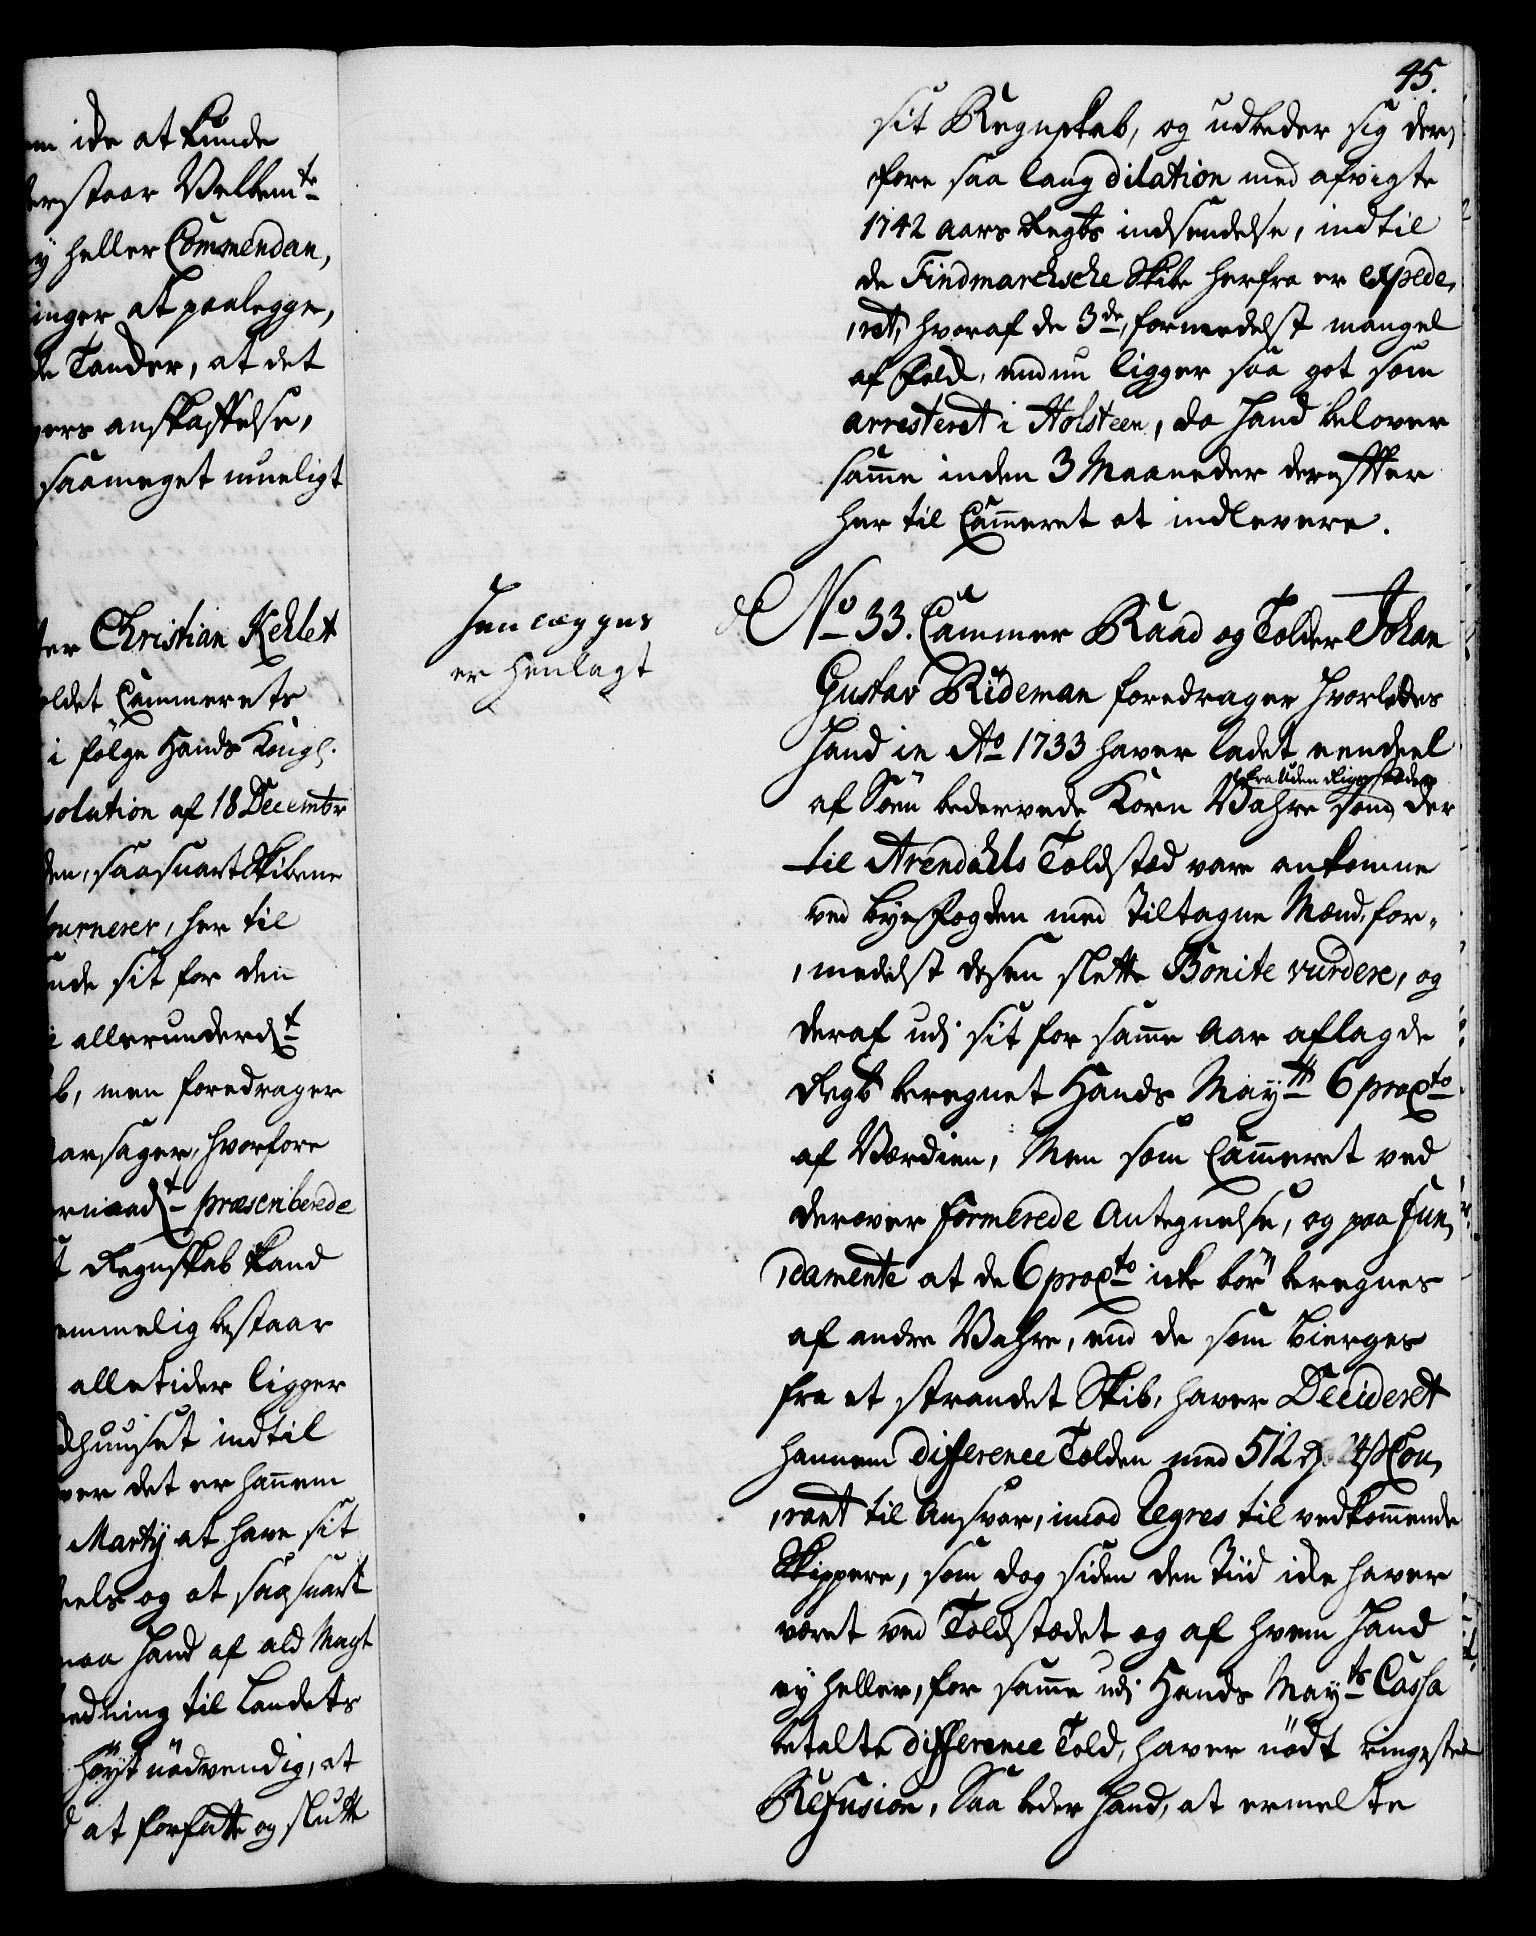 45.
em icke at kunde
derstaar Velbemte
ey heller Commendan,
inger at paalegge,
de Tander, at det
vers anskaffelse,
saameget mueligt
ter Christian Kehlet
oldet Cammerets
i følge Hands Kongl.
solution af 18 Decembr
den, saasnart Skibene
tournerer, her til
nde sit for den
allerunderd:t
b, men foredrager
aarsager, hvorfore
ernaad:t præscriberede
t Regnskab kand
emmelig bestaar
alletider ligger
dhuuset indtil
ver det er hannem
Martij at have sit
eels og at saasnart
maa Hand af ald Magt
edning til Landets
høyst nødvendig, at
d at forfatte og slutte
sit Regnskab, og udbeder sig der,
fore saa lang dilation med afvigte
1742 aars Regbs indsendelse, indtil
de Findmarchsche Skibe herfra er expede,
,ret, hvoraf de 3de, formedelst mangel
af Folck, endnu ligger saa got som
arresteret i Holsteen, da Hand belover
samme inden 3 Maaneder derefter
her til Cammeret at indlevere.
Henlægges
er henlagt
No 33. Cammer Raad og Tolder Johan
Gustav Rideman foredrager hvorledes
Hand in Ao 1733 haver ladet eendeel
fra Uden Rigs Stæder
af Søen bedervede Korn Vahre som der
til Arendahls Toldstæd vare ankomne
ved Byefogden med tiltagne Mænd, for,
,medelst desen slette Bonite vurdere, og
deraf udj sit for samme Aar aflagde
Regb beregnet Hands Mayts 6 proCto
af Værdien, Men som Cammeret ved
derover formerede Antegnelse, og paa fun,
,damente at de 6 proCto icke bør beregnes
af andre Vahre, end de som bierges
fra et strandet Skib, haver Decideret
hannem difference Tolden med 512 rd 4 s Cou,
,rant til Ansvar, imod Regres til vedkommende
Skippere, som dog siden den Tiid icke haver
været ved Toldstædet og af hvem Hand
ey heller, for samme udj Hands Mayts Cassa
betalte difference Told, haver nødt ringeste
Refusion, Saa beder Hand, at ermelte